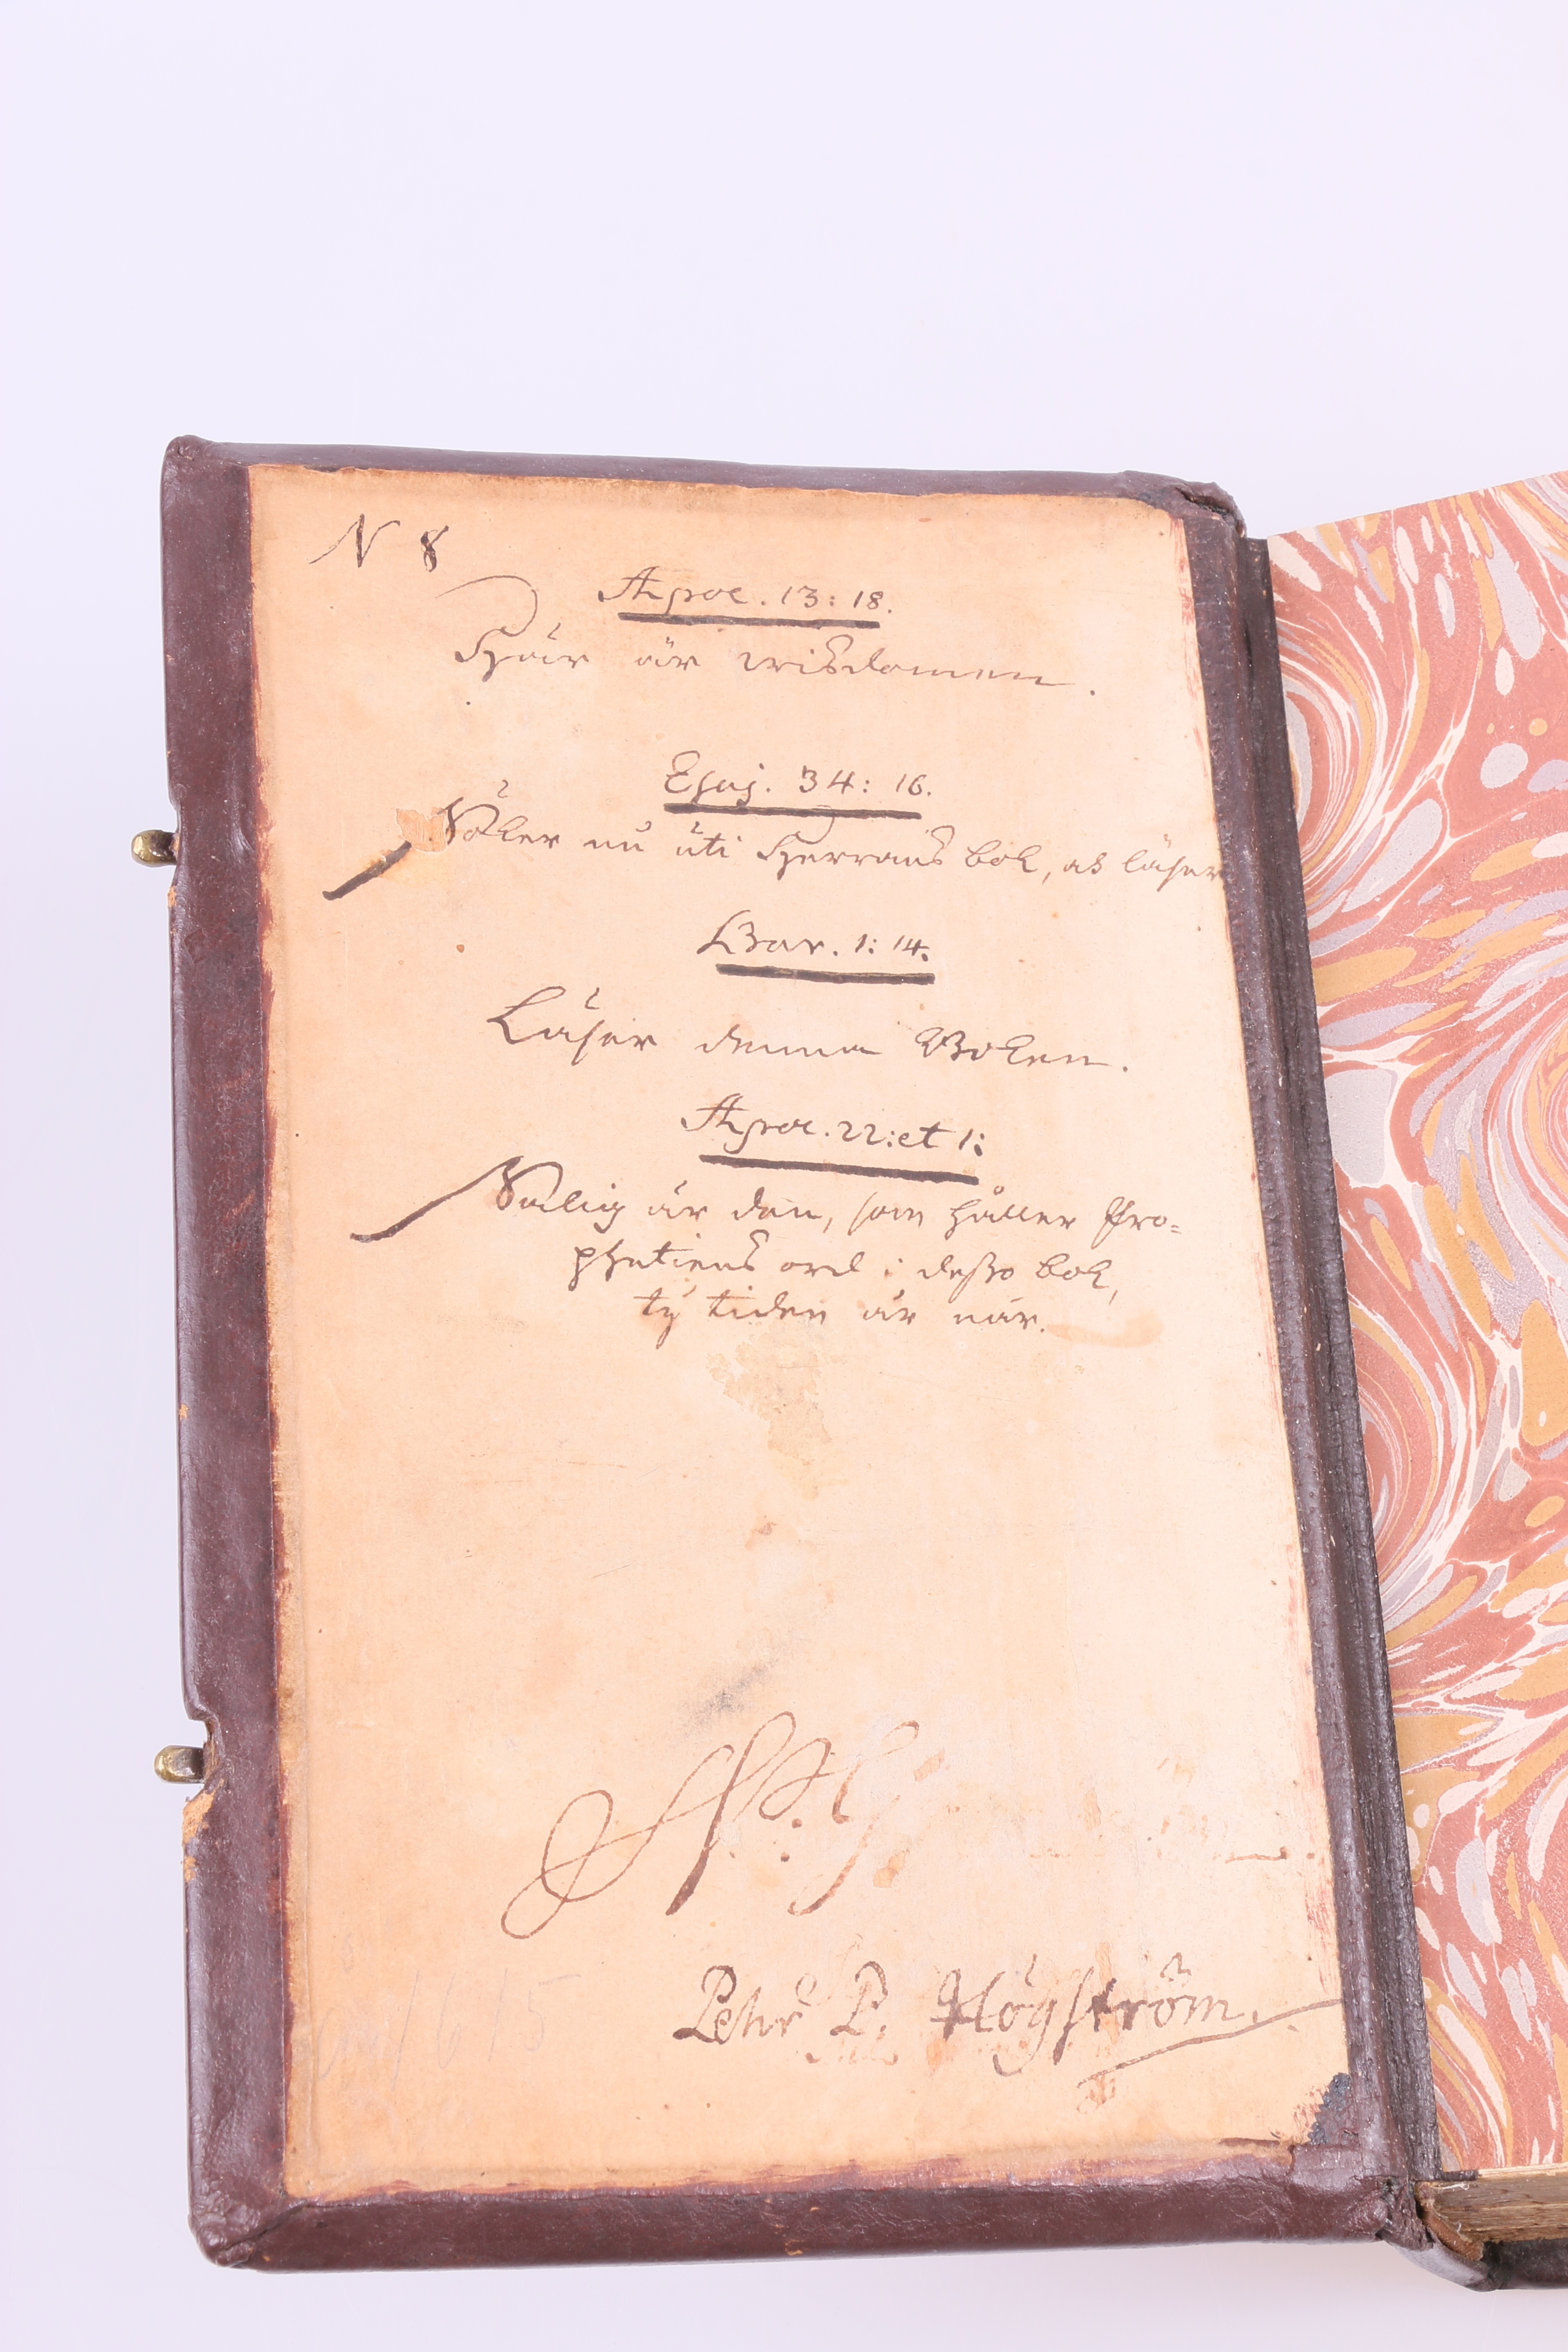 N 8
Apoc. 13: 18.
Här är wisdomen.
Esaj. 34: 16.
Söker nu uti Herrans bok, och läser
Bar. 1: 14.
Läser denna Boken.
Apoc. 22: et 1:
Salig är den, som håller Pro=
phetiens ord i desso bok,
ty tiden är når.
Pehr P. Högström.